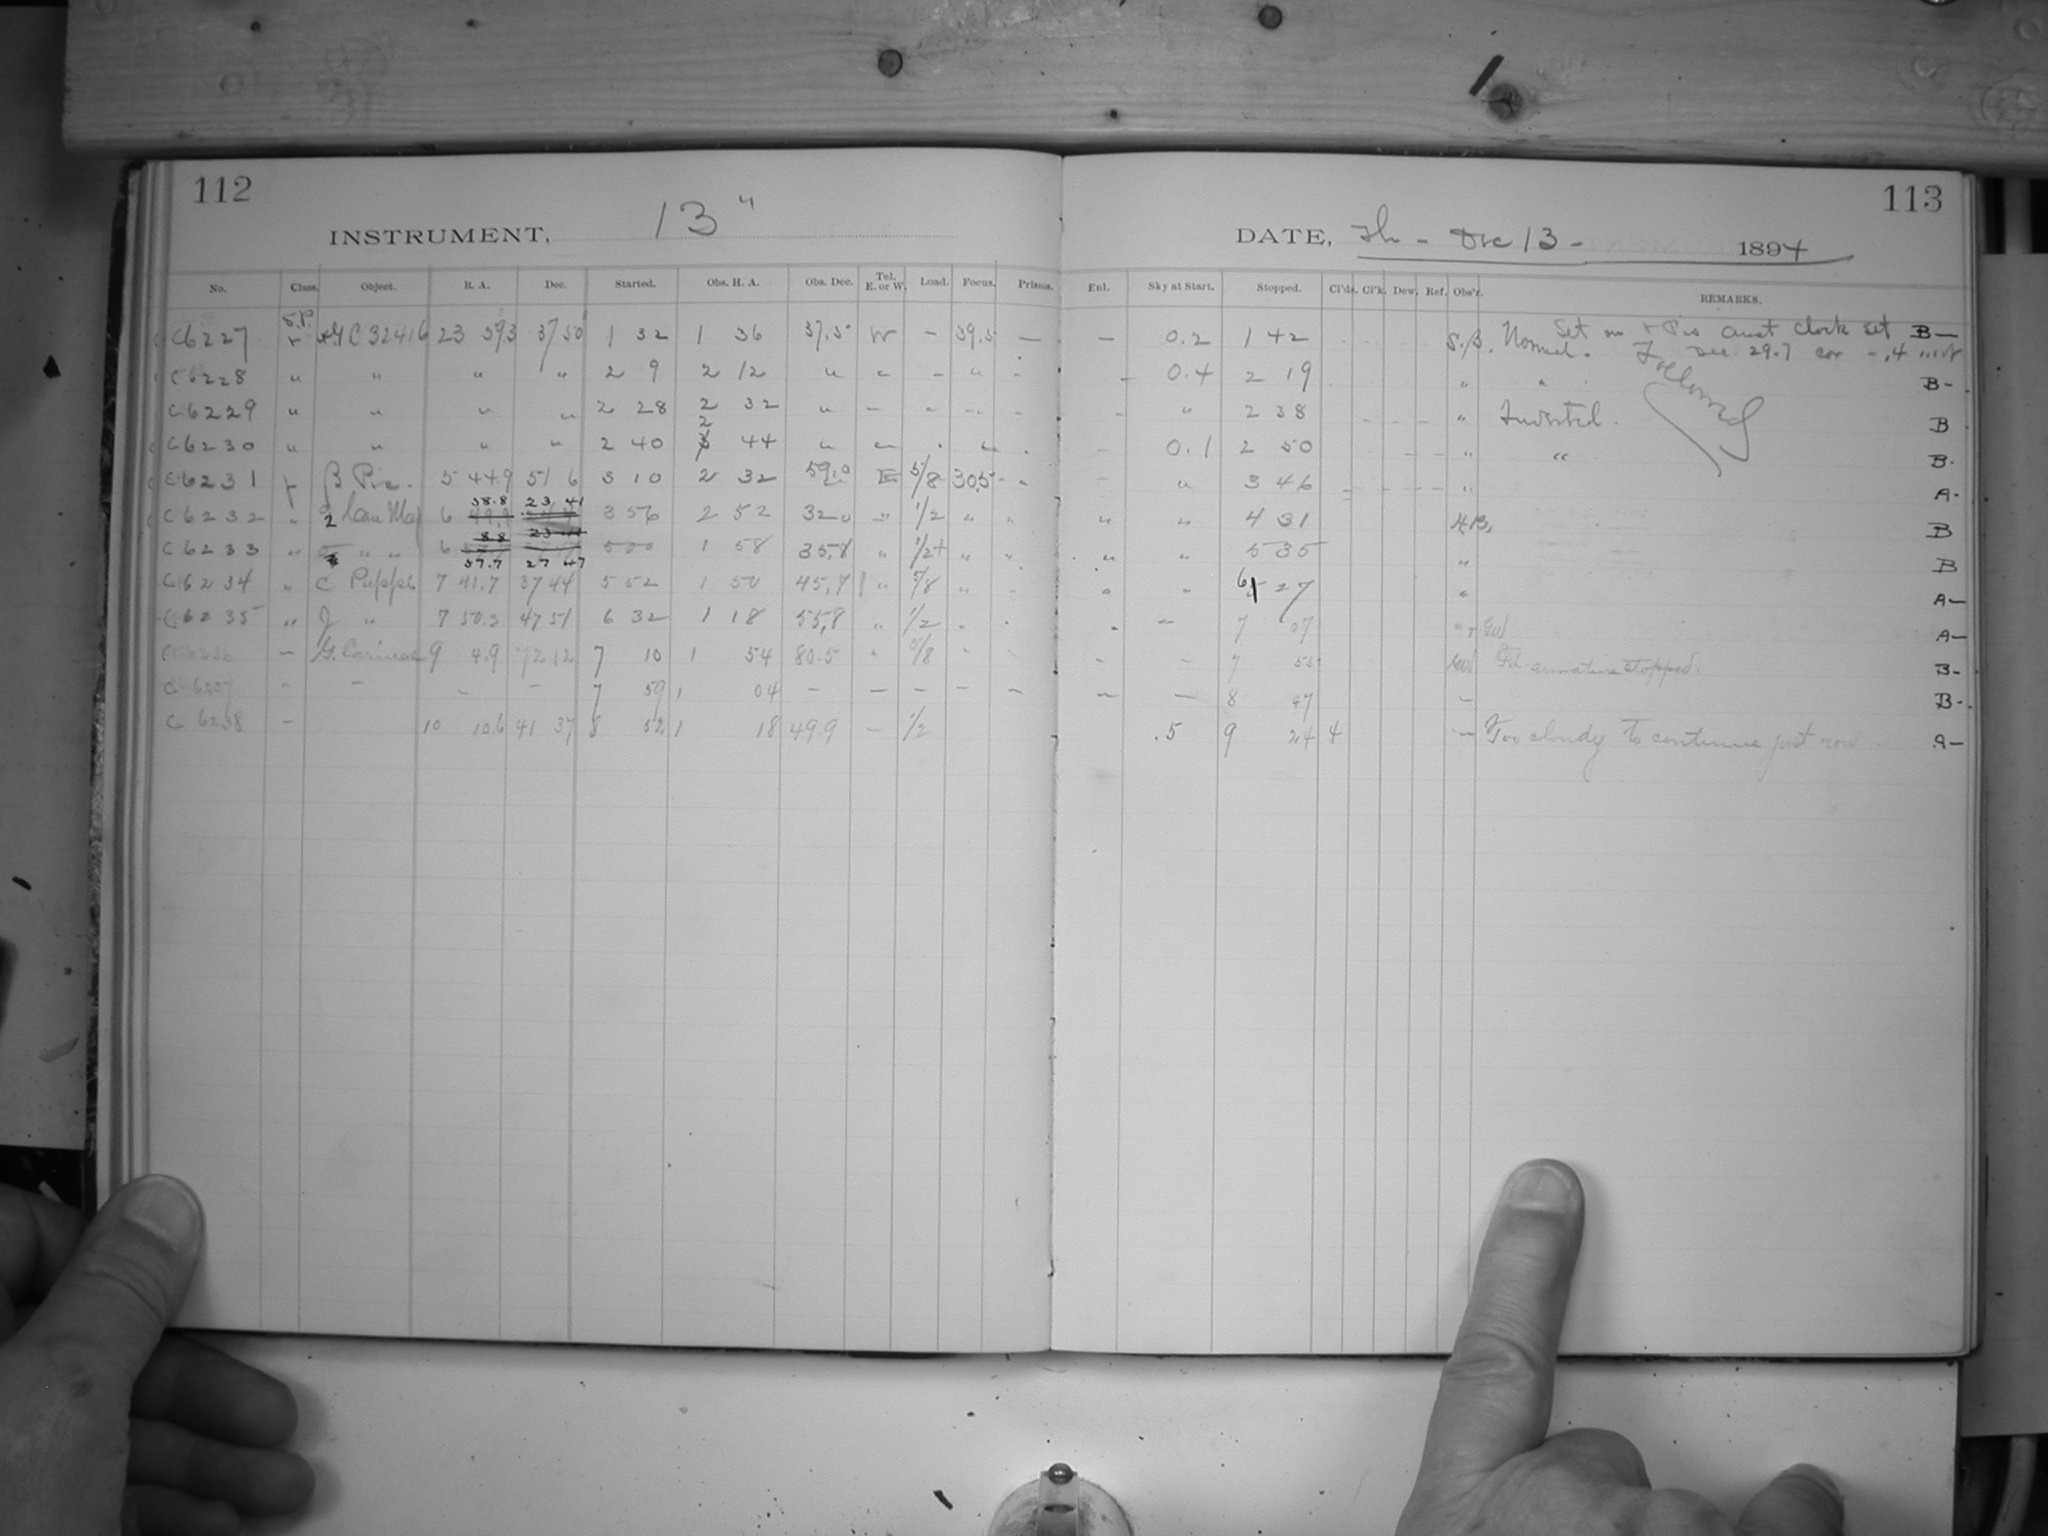 112
113
INSTRUMENT, 13"
DATE, Th - Dec 13 - 1894
No. Class. Object. R. A. Dec. Started. Obs. H. A. Obs. Dec. Tel. E. or W. Load. Focus. Prisms. Enl. Sky at Start. Stopped. Cl'ds. Cl'k. Dew. Ref. Obs'r. REMARKS.
S.P.
C6227 GC 32416 23 59.3 37 50 1 32 1 36 37.5 W - 39.5 - - 0.2 1 42 S.B. Normal. Set on Pis aust clock set B-
Dec. 29.7 cor -.4
C6228 " " " " 2 9 2 12 " " - " - - 0.4 2 19 " " Followed B-
C6229 " " " " 2 28 2 32 " - " - - - " 2 38 " Inverted. B
C6230 " " " " 2 40 2 44 " " " - 0.1 2 50 " " B-
C6231 β Pic. 5 44.9 51 6 3 10 2 32 59.0 E 5/8 30.5 - " 3 46 " A-
38.8 23 41
C6232 " Can Maj 6 3 56 2 52 32.0 " 1/2 " " " " 4 31 B
C6233 " " " 6 5 00 1 58 35.8 " 1/2+ " " " " 5 35 " B
57.7 27 47
C6234 " C Puppis 7 41.7 37 44 5 52 1 50 45.8 " 5/8 " " " " 6 27 " A-
C6235 " J " 7 50.3 47 51 6 32 1 18 55.8 " 1/2 " - 7 07 " A-
C6236 - G. Carinae 9 4.9 72 12 7 10 1 54 80.5 " 5/8 " - - 7 55 armature stopped. B-
C 6237 - - - - 7 59 1 04 - - - - - - - 8 47 - B-
C 6238 - 10 10.6 41 37 8 52 1 18 49.9 - 1/2 .5 9 24 4 - Too cloudy to continue just now A-